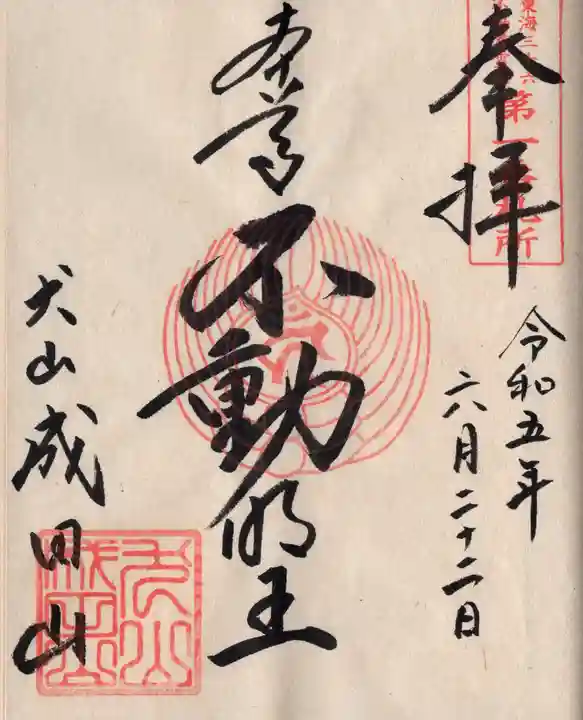 奉拝
令和五年
六月二十二日
本尊
不動明王
犬山成田山
東海三十六
第一番札所